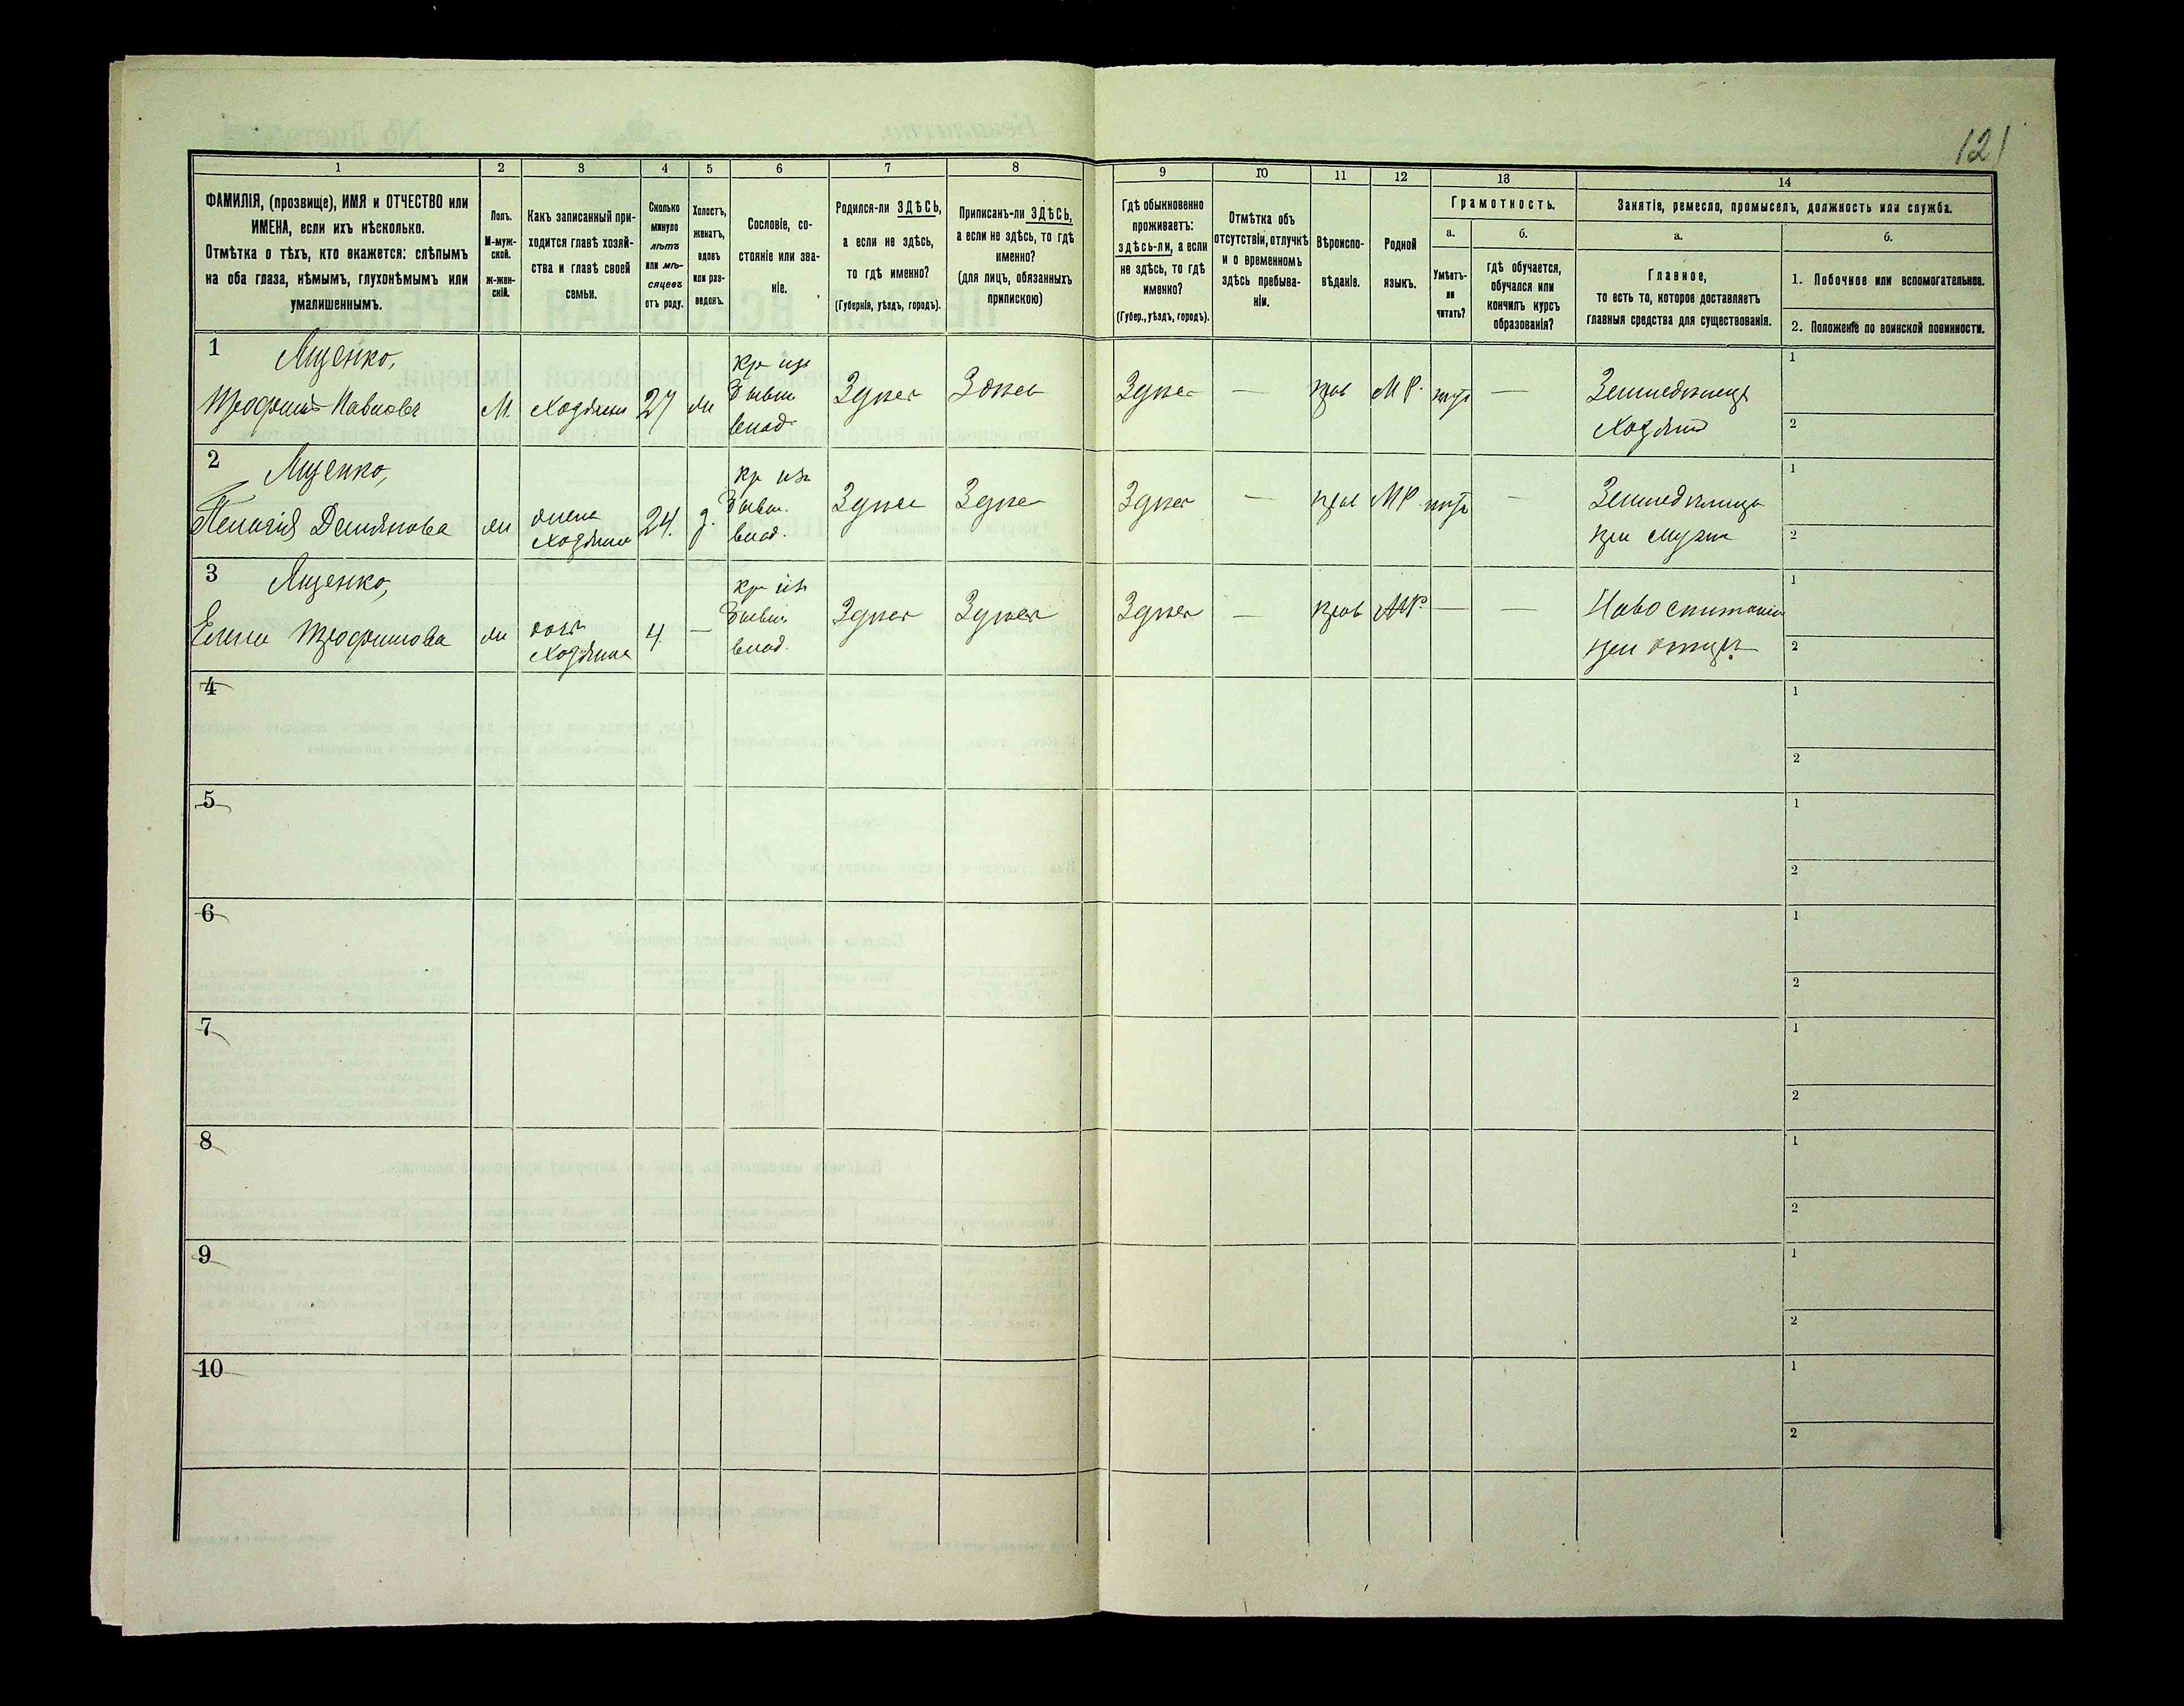 121
1 2 3 4 5 6 7 8 9 10 11 12 13 14
ФАМИЛІЯ, (прозвище), ИМЯ и ОТЧЕСТВО или
ИМЕНА, если ихъ нѣсколько.
Отмѣтка о тѣхъ, кто окажется: слѣпымъ
на оба глаза, нѣмымъ, глухонѣмымъ или
умалишеннымъ.
Полъ.
М-муж-
ской.
ж-жен-
скій.
Какъ записанный при-
ходится главѣ хозяй-
ства и главѣ своей
семьи.
Сколько
минуло
лѣтъ
или мѣ-
сяцевъ
отъ роду.
Холостъ,
женатъ,
вдовъ
или раз-
веденъ.
Сословіе, со-
стояніе или зва-
ніе.
Родился-ли ЗДѢСЬ,
а если не здѣсь,
то гдѣ именно?
(Губернія, уѣздъ, городъ).
Приписанъ-ли ЗДѢСЬ,
а если не здѣсь, то гдѣ
именно?
(для лицъ, обязанныхъ
припискою)
Гдѣ обыкновенно
проживаетъ:
здѣсь-ли, а если
не здѣсь, то гдѣ
именно?
(Губер., уѣздъ, городъ).
Отмѣтка объ
отсутствіи, отлучкѣ
и о временномъ
здѣсь пребыва-
ніи.
Вѣроиспо-
вѣданіе.
Родной
языкъ.
Грамотность.
а.
Умѣетъ-
ли
читать?
б.
гдѣ обучается,
обучался или
кончилъ курсъ
образованія?
Занятіе, ремесло, промыселъ, должность или служба.
а.
Главное,
то есть то, которое доставляетъ
главныя средства для существованія.
б.
1. Побочное или вспомогательное.
2. Положеніе по воинской повинности.
1 Ященко,
Трофимъ Павловъ М. Хозяинъ 27 ж кр изъ бывш влад. Здѣсь Здѣсь Здѣсь — прав М Р. нѣтъ — Земледѣлецъ
Хозяинъ
1
2
2 Ященко,
Пелагія Демьянова ж жена Хозяина 24. з. кр изъ бывш. влад. Здѣсь Здѣсь Здѣсь — прав М Р нѣтъ — Земледѣлица
при мужѣ
1
2
3 Ященко,
Елена Трофимова ж дочь Хозяина 4 — кр изъ бывш влад. Здѣсь Здѣсь Здѣсь — прав М Р. — —
при отцѣ.
1
2
4
1
2
5
1
2
6
1
2
7
1
2
8
1
2
9
1
2
10
1
2